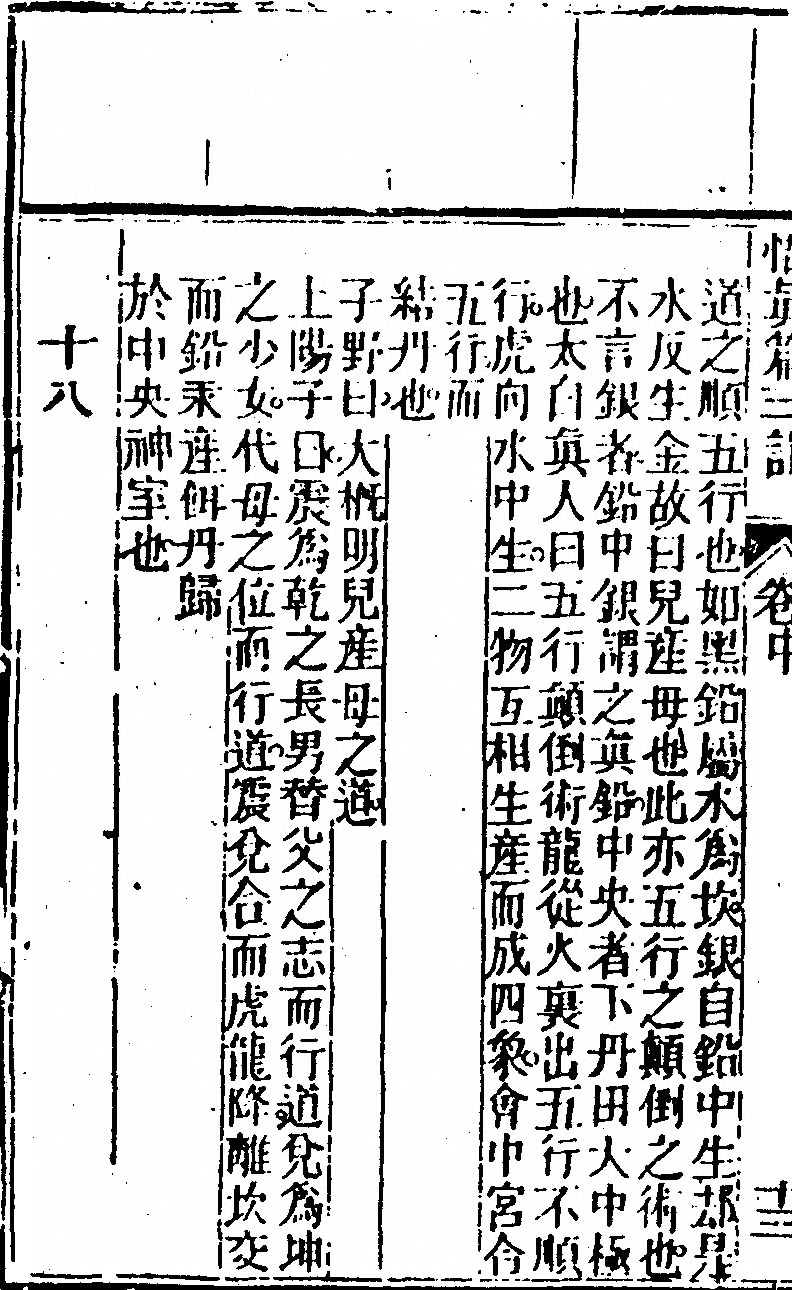 悟真篇三註 卷中 十三
道之順五行也如黑鉛屬水為坎銀自鉛中生却是
水反生金故曰兒產母也此亦五行之顛倒之術也
不言銀者鉛中銀謂之真鉛中央者下丹田大中極
也太白真人曰五行顛倒術龍從火裏出五行不順
行虎向水中生二物互相生產而成四象會中宮合
五行而
結丹也
子野曰大概明兒產母之道
上陽子曰震為乾之長男替父之志而行道兌為坤
之少女代母之位而行道震兌合而虎龍降離坎交
而鉛汞產餌丹歸
於中央神室也
十八